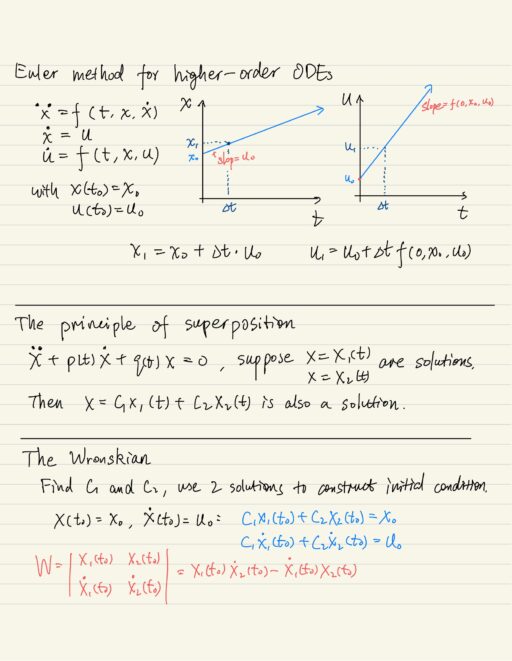 Euler method for higher-order ODEs
ẍ = f (t, x, ẋ)
ẋ = u
u̇ = f(t, x, u)
with x(t₀) = x₀
u(t₀) = u₀
x
x₁
x₀
slope = u₀
Δt
t
u
slope = f(0, x₀, u₀)
u₁
u₀
Δt
t
x₁ = x₀ + Δt · u₀
u₁ = u₀ + Δt f(0, x₀, u₀)
The principle of superposition
ẍ + p(t) ẋ + q(t) x = 0 , suppose x = x₁(t) are solutions.
x = x₂(t)
Then x = C₁x₁(t) + C₂x₂(t) is also a solution.
The Wronskian
Find C₁ and C₂, use 2 solutions to construct initial condition.
x(t₀) = x₀ , ẋ(t₀) = u₀ : C₁x₁(t₀) + C₂x₂(t₀) = x₀
C₁ẋ₁(t₀) + C₂ẋ₂(t₀) = u₀
W = | x₁(t₀) x₂(t₀) | = x₁(t₀) ẋ₂(t₀) − ẋ₁(t₀) x₂(t₀)
| ẋ₁(t₀) ẋ₂(t₀) |